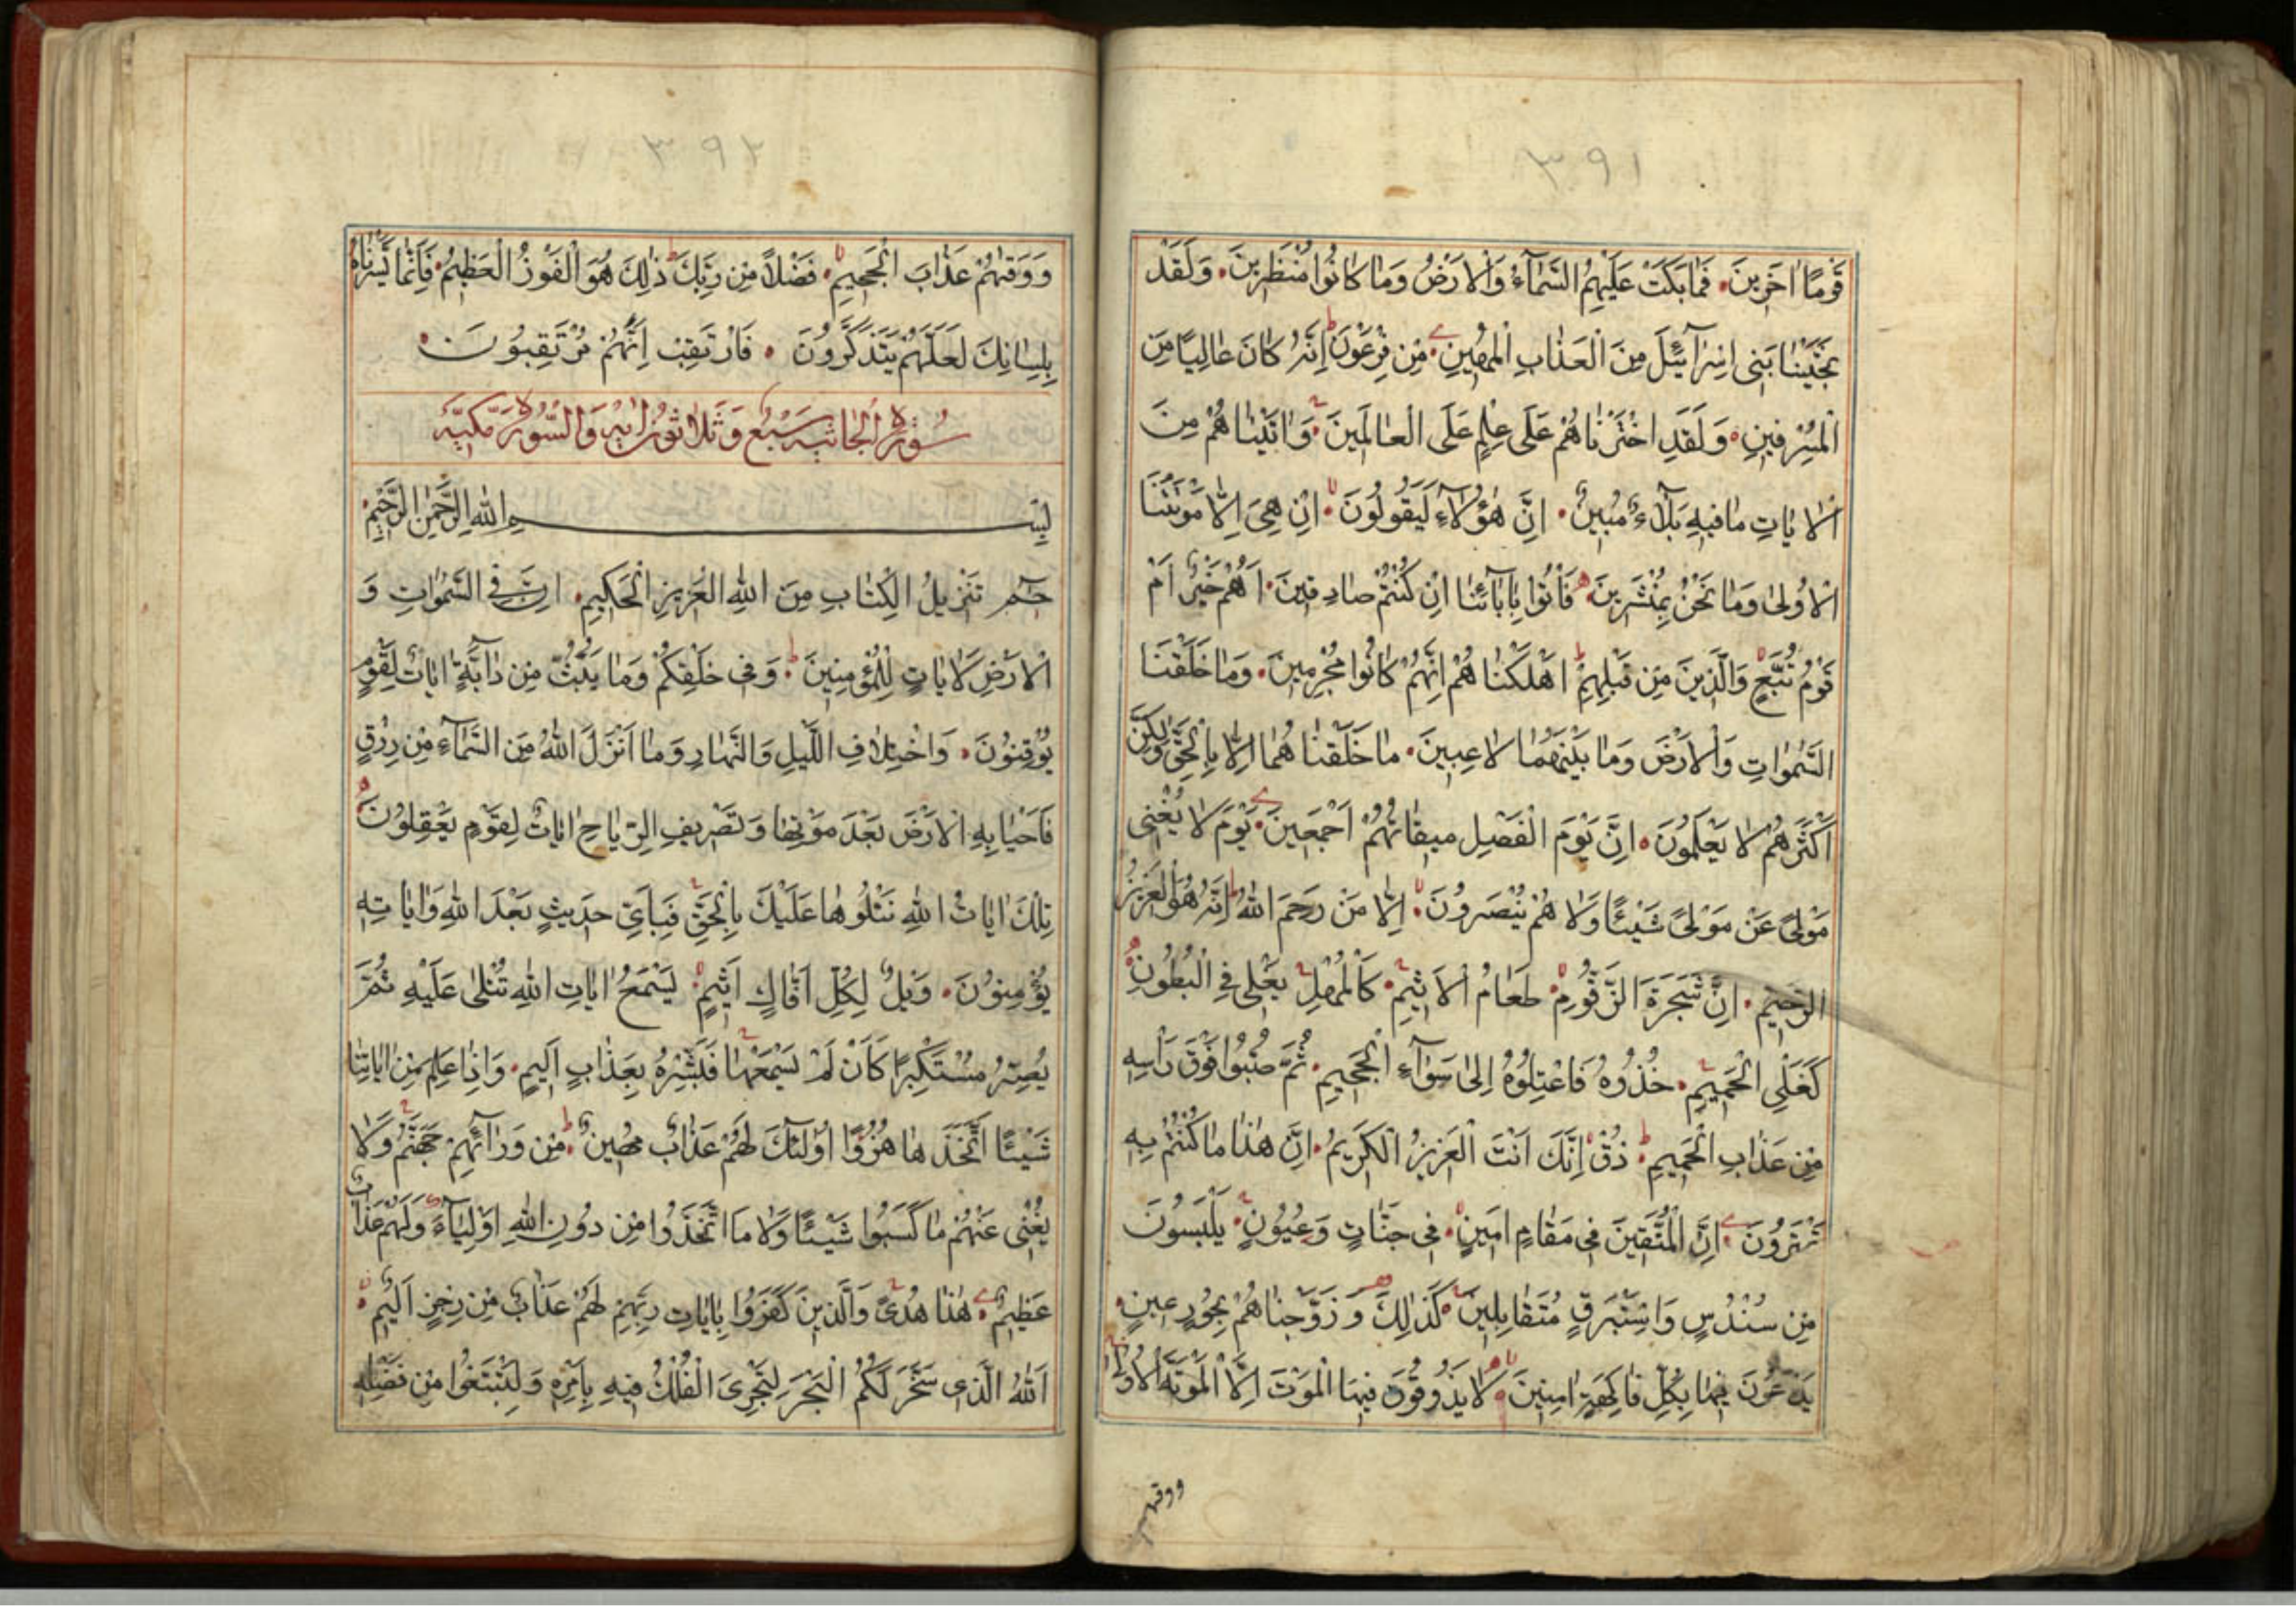 ٣٩١
قَوْمًا اٰخَرِينَ فَمَا بَكَتْ عَلَيْهِمُ السَّمَآءُ وَالْاَرْضُ وَمَا كَانُوا مُنْظَرِينَ وَلَقَدْ
نَجَّيْنَا بَنِى اِسْرَآئيلَ مِنَ الْعَذَابِ الْمُهِينِ مِنْ فِرْعَوْنَ اِنَّهُ كَانَ عَالِيًا مِنَ
الْمُسْرِفِينَ وَلَقَدِ اخْتَرْنَاهُمْ عَلَى عِلْمٍ عَلَى الْعَالَمِينَ وَاٰتَيْنَاهُمْ مِنَ
الْاٰيَاتِ مَا فِيهِ بَلَآءٌ مُبِينٌ اِنَّ هٰؤُلَآءِ لَيَقُولُونَ اِنْ هِىَ اِلَّا مَوْتَتُنَا
الْاُولٰى وَمَا نَحْنُ بِمُنْشَرِينَ فَأْتُوا بِاٰبَآئِنَا اِنْ كُنْتُمْ صَادِقِينَ اَهُمْ خَيْرٌ اَمْ
قَوْمُ تُبَّعٍ وَالَّذِينَ مِنْ قَبْلِهِمْ اَهْلَكْنَاهُمْ اِنَّهُمْ كَانُوا مُجْرِمِينَ وَمَا خَلَقْنَا
السَّمٰوَاتِ وَالْاَرْضَ وَمَا بَيْنَهُمَا لَاعِبِينَ مَا خَلَقْنَاهُمَا اِلَّا بِالْحَقِّ وَلٰكِنَّ
اَكْثَرَهُمْ لَا يَعْلَمُونَ اِنَّ يَوْمَ الْفَصْلِ مِيقَاتُهُمْ اَجْمَعِينَ يَوْمَ لَا يُغْنِى
مَوْلًى عَنْ مَوْلًى شَيْئًا وَلَا هُمْ يُنْصَرُونَ اِلَّا مَنْ رَحِمَ اللّٰهُ اِنَّهُ هُوَ الْعَزِيزُ
الرَّحِيمُ اِنَّ شَجَرَةَ الزَّقُّومِ طَعَامُ الْاَثِيمِ كَالْمُهْلِ يَغْلِى فِى الْبُطُونِ
كَغَلْىِ الْحَمِيمِ خُذُوهُ فَاعْتِلُوهُ اِلٰى سَوَآءِ الْجَحِيمِ ثُمَّ صُبُّوا فَوْقَ رَأْسِهِ
مِنْ عَذَابِ الْحَمِيمِ ذُقْ اِنَّكَ اَنْتَ الْعَزِيزُ الْكَرِيمُ اِنَّ هٰذَا مَا كُنْتُمْ بِهِ
تَمْتَرُونَ اِنَّ الْمُتَّقِينَ فِى مَقَامٍ اَمِينٍ فِى جَنَّاتٍ وَعُيُونٍ يَلْبَسُونَ
مِنْ سُنْدُسٍ وَاِسْتَبْرَقٍ مُتَقَابِلِينَ كَذٰلِكَ وَزَوَّجْنَاهُمْ بِحُورٍ عِينٍ
يَدْعُونَ فِيهَا بِكُلِّ فَاكِهَةٍ اٰمِنِينَ لَا يَذُوقُونَ فِيهَا الْمَوْتَ اِلَّا الْمَوْتَةَ الْاُولٰى
ووقيهم
٣٩٢
وَوَقٰيهُمْ عَذَابَ الْجَحِيمِ فَضْلًا مِنْ رَبِّكَ ذٰلِكَ هُوَ الْفَوْزُ الْعَظِيمُ فَاِنَّمَا يَسَّرْنَاهُ
بِلِسَانِكَ لَعَلَّهُمْ يَتَذَكَّرُونَ فَارْتَقِبْ اِنَّهُمْ مُرْتَقِبُونَ
سُورَةُ الْجَاثِيَه سَبْعٌ وَثَلَاثُونَ اٰيَةً وَالسُّورَةُ مَكِّيَّة
بِسْمِ اللّٰهِ الرَّحْمٰنِ الرَّحِيمِ
حٰمٓ تَنْزِيلُ الْكِتَابِ مِنَ اللّٰهِ الْعَزِيزِ الْحَكِيمِ اِنَّ فِى السَّمٰوَاتِ وَ
الْاَرْضِ لَاٰيَاتٍ لِلْمُؤْمِنِينَ وَفِى خَلْقِكُمْ وَمَا يَبُثُّ مِنْ دَآبَّةٍ اٰيَاتٌ لِقَوْمٍ
يُوقِنُونَ وَاخْتِلَافِ اللَّيْلِ وَالنَّهَارِ وَمَا اَنْزَلَ اللّٰهُ مِنَ السَّمَآءِ مِنْ رِزْقٍ
فَاَحْيَا بِهِ الْاَرْضَ بَعْدَ مَوْتِهَا وَتَصْرِيفِ الرِّيَاحِ اٰيَاتٌ لِقَوْمٍ يَعْقِلُونَ
تِلْكَ اٰيَاتُ اللّٰهِ نَتْلُوهَا عَلَيْكَ بِالْحَقِّ فَبِاَىِّ حَدِيثٍ بَعْدَ اللّٰهِ وَاٰيَاتِهِ
يُؤْمِنُونَ وَيْلٌ لِكُلِّ اَفَّاكٍ اَثِيمٍ يَسْمَعُ اٰيَاتِ اللّٰهِ تُتْلٰى عَلَيْهِ ثُمَّ
يُصِرُّ مُسْتَكْبِرًا كَاَنْ لَمْ يَسْمَعْهَا فَبَشِّرْهُ بِعَذَابٍ اَلِيمٍ وَاِذَا عَلِمَ مِنْ اٰيَاتِنَا
شَيْئًا اتَّخَذَهَا هُزُوًا اُولٰئِكَ لَهُمْ عَذَابٌ مُهِينٌ مِنْ وَرَآئِهِمْ جَهَنَّمُ وَلَا
يُغْنِى عَنْهُمْ مَا كَسَبُوا شَيْئًا وَلَا مَا اتَّخَذُوا مِنْ دُونِ اللّٰهِ اَوْلِيَآءَ وَلَهُمْ عَذَابٌ
عَظِيمٌ هٰذَا هُدًى وَالَّذِينَ كَفَرُوا بِاٰيَاتِ رَبِّهِمْ لَهُمْ عَذَابٌ مِنْ رِجْزٍ اَلِيمٌ
اَللّٰهُ الَّذِى سَخَّرَ لَكُمُ الْبَحْرَ لِتَجْرِىَ الْفُلْكُ فِيهِ بِاَمْرِهِ وَلِتَبْتَغُوا مِنْ فَضْلِهِ